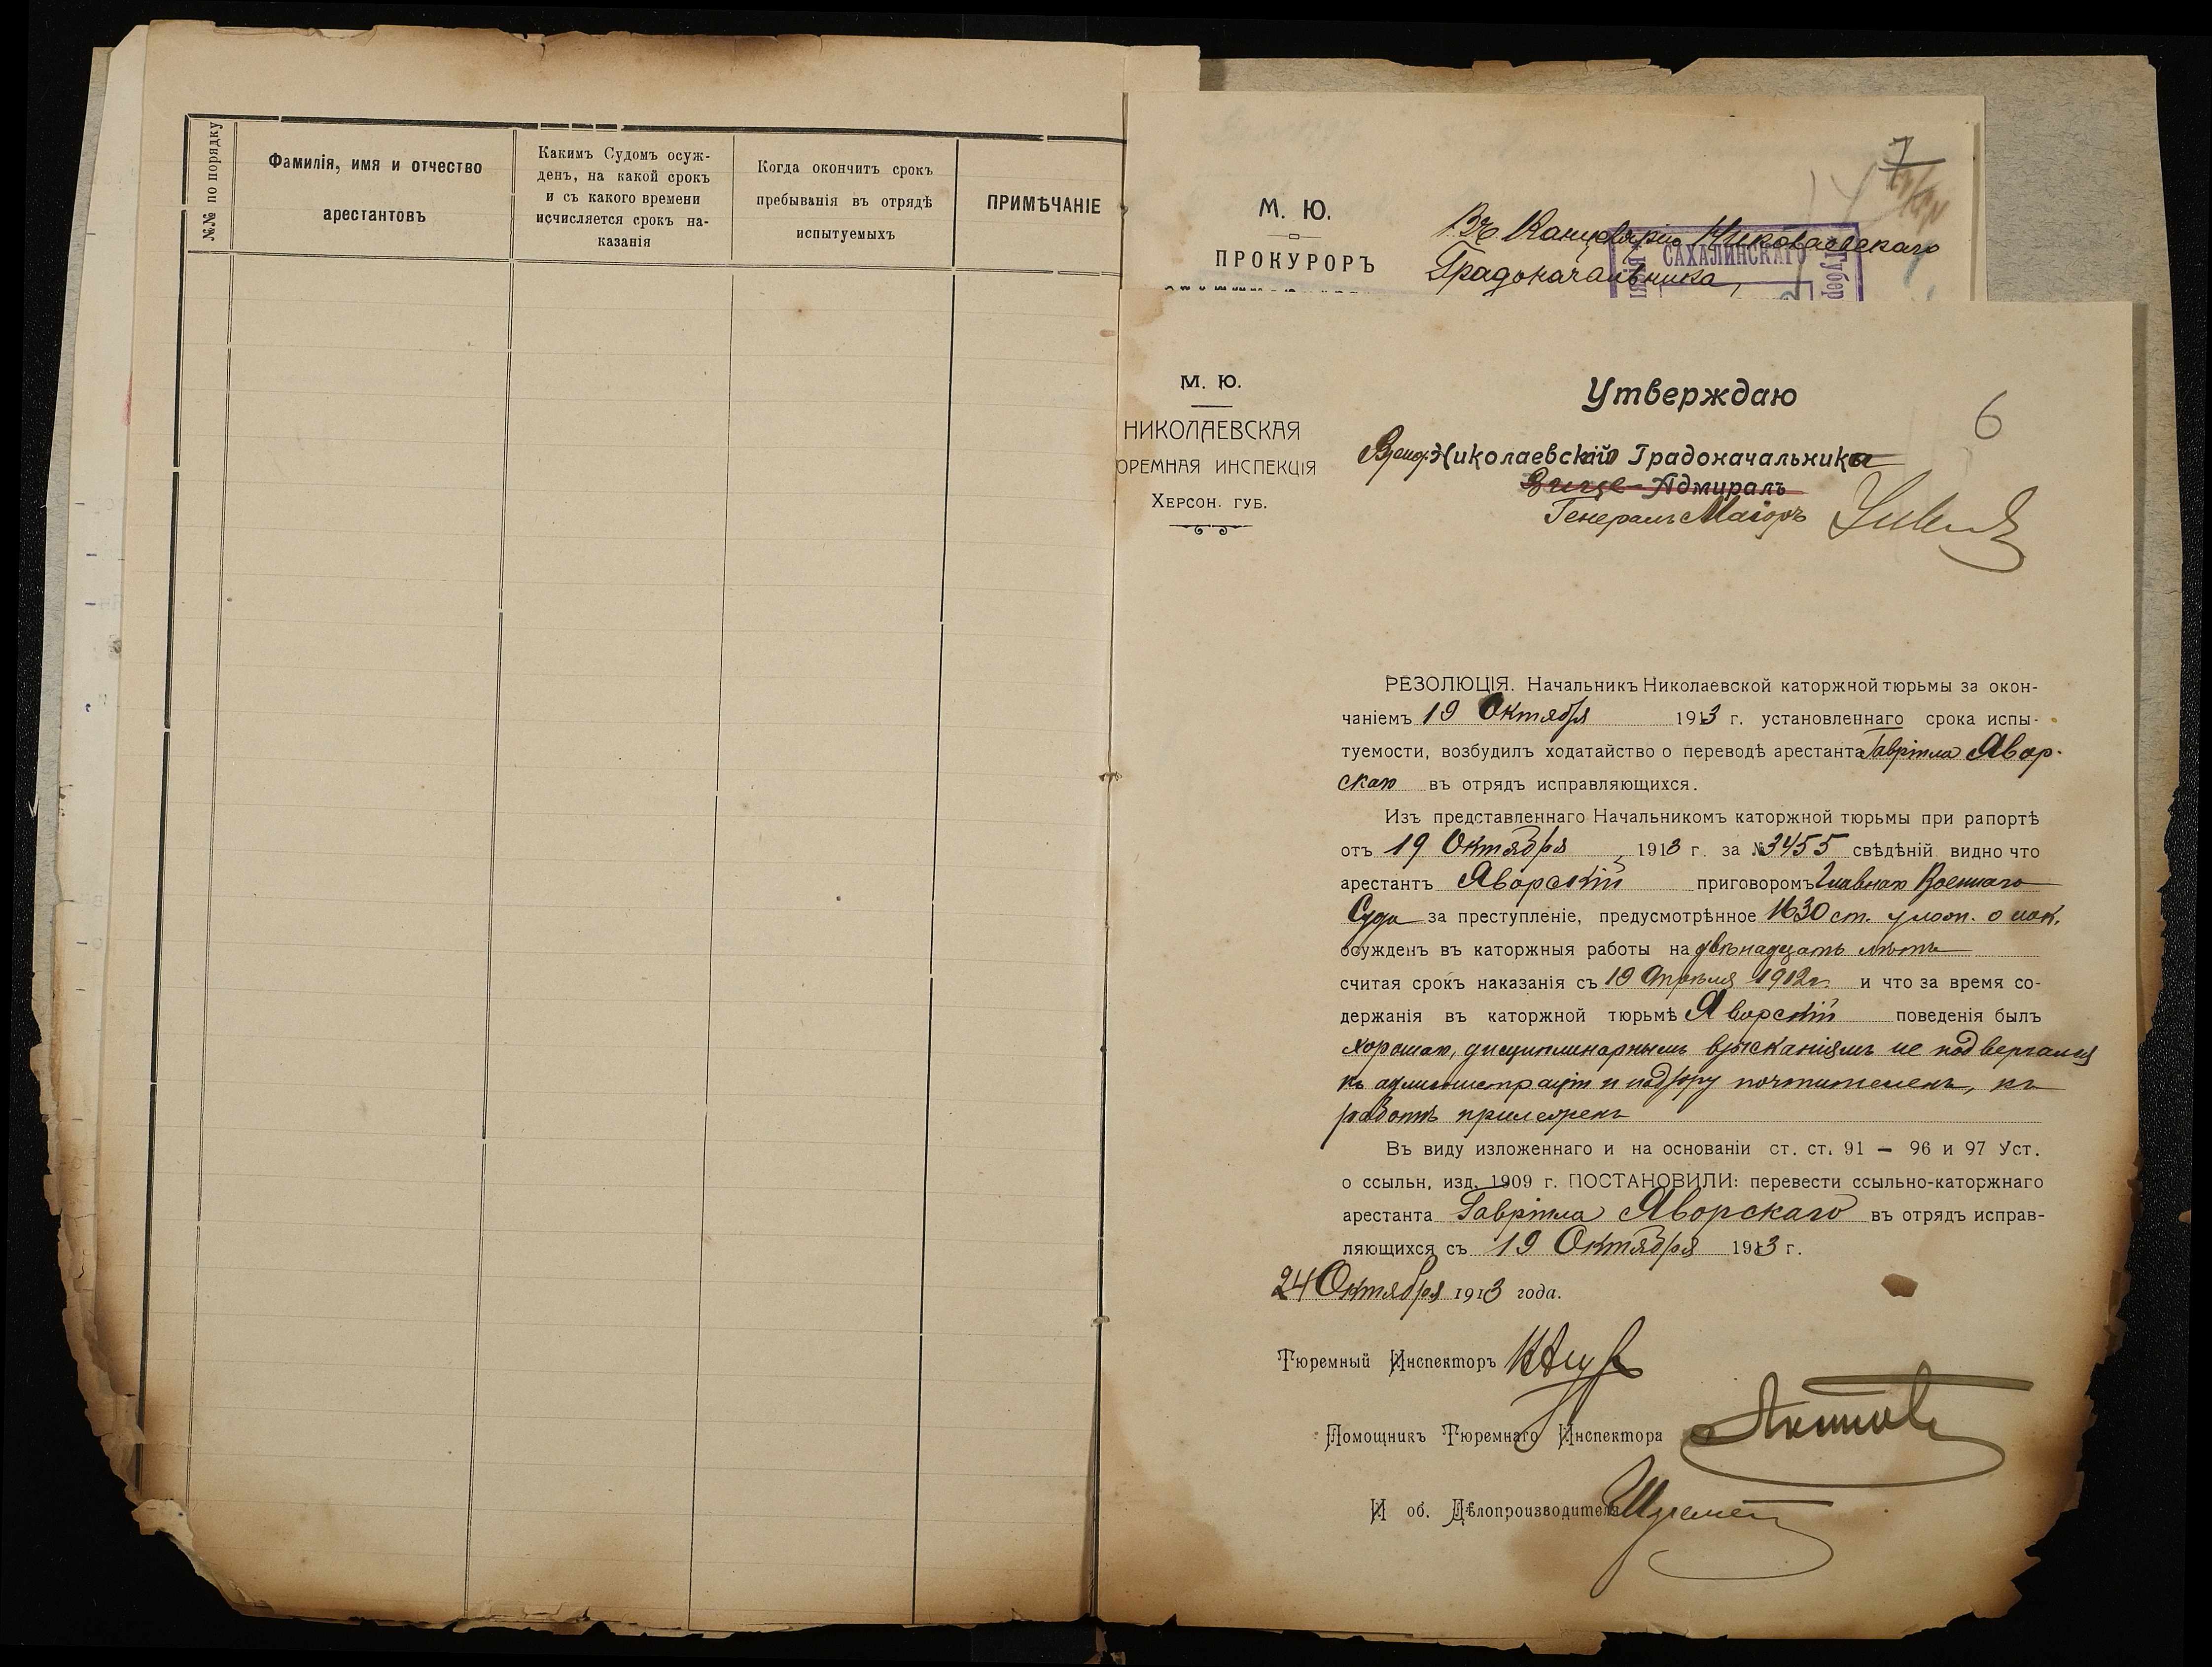 №№ по порядку
Фамилія, имя и отчество
арестантовъ
Какимъ Судомъ осуж-
денъ, на какой срокъ
и съ какого времени
исчисляется срокъ на-
казанія
Когда окончитъ срокъ
пребыванія въ отрядѣ
испытуемыхъ
ПРИМѢЧАНІЕ
7
М. Ю.
ПРОКУРОРЪ
Въ Канцелярію Николаевскаго
Градоначальника,
САХАЛИНСКАГО
Губер
М. Ю.
НИКОЛАЕВСКАЯ
ЮРЕМНАЯ ИНСПЕКЦІЯ
ХЕРСОН. ГУБ.
Утверждаю
6
Николаевскій Градоначальника
Вице-Адмиралъ
Генералъ Маіоръ
РЕЗОЛЮЦІЯ. Начальникъ Николаевской каторжной тюрьмы за окон-
чаніемъ 19 Октября 1913 г. установленнаго срока испы-
туемости, возбудилъ ходатайство о переводѣ арестанта Гавріила Явор-
скаго въ отрядъ исправляющихся.
Изъ представленнаго Начальникомъ каторжной тюрьмы при рапортѣ
отъ 19 Октября 1913 г. за №3455 свѣдѣній видно что
арестантъ Яворскій приговоромъ Главнаго Военнаго
Суда за преступленіе, предусмотрѣнное 1630 ст. улож. о нак.
осужденъ въ каторжныя работы на двѣнадцать лѣтъ
считая срокъ наказанія съ 19 Апрѣля 1912 г. и что за время со-
держанія въ каторжной тюрьмѣ Яворскій поведенія былъ
хорошаго, дисциплинарнымъ взысканіямъ не подвергался
къ администраціи и надзору почтителенъ, къ
работѣ прилеженъ
Въ виду изложеннаго и на основаніи ст. ст. 91 — 96 и 97 Уст.
о ссыльн. изд. 1909 г. ПОСТАНОВИЛИ: перевести ссыльно-каторжнаго
арестанта Гавріила Яворскаго въ отрядъ исправ-
ляющихся съ 19 Октября 1913 г.
24 Октября 1913 года.
Тюремный Инспекторъ
Помощникъ Тюремнаго Инспектора
И об. Дѣлопроизводителя